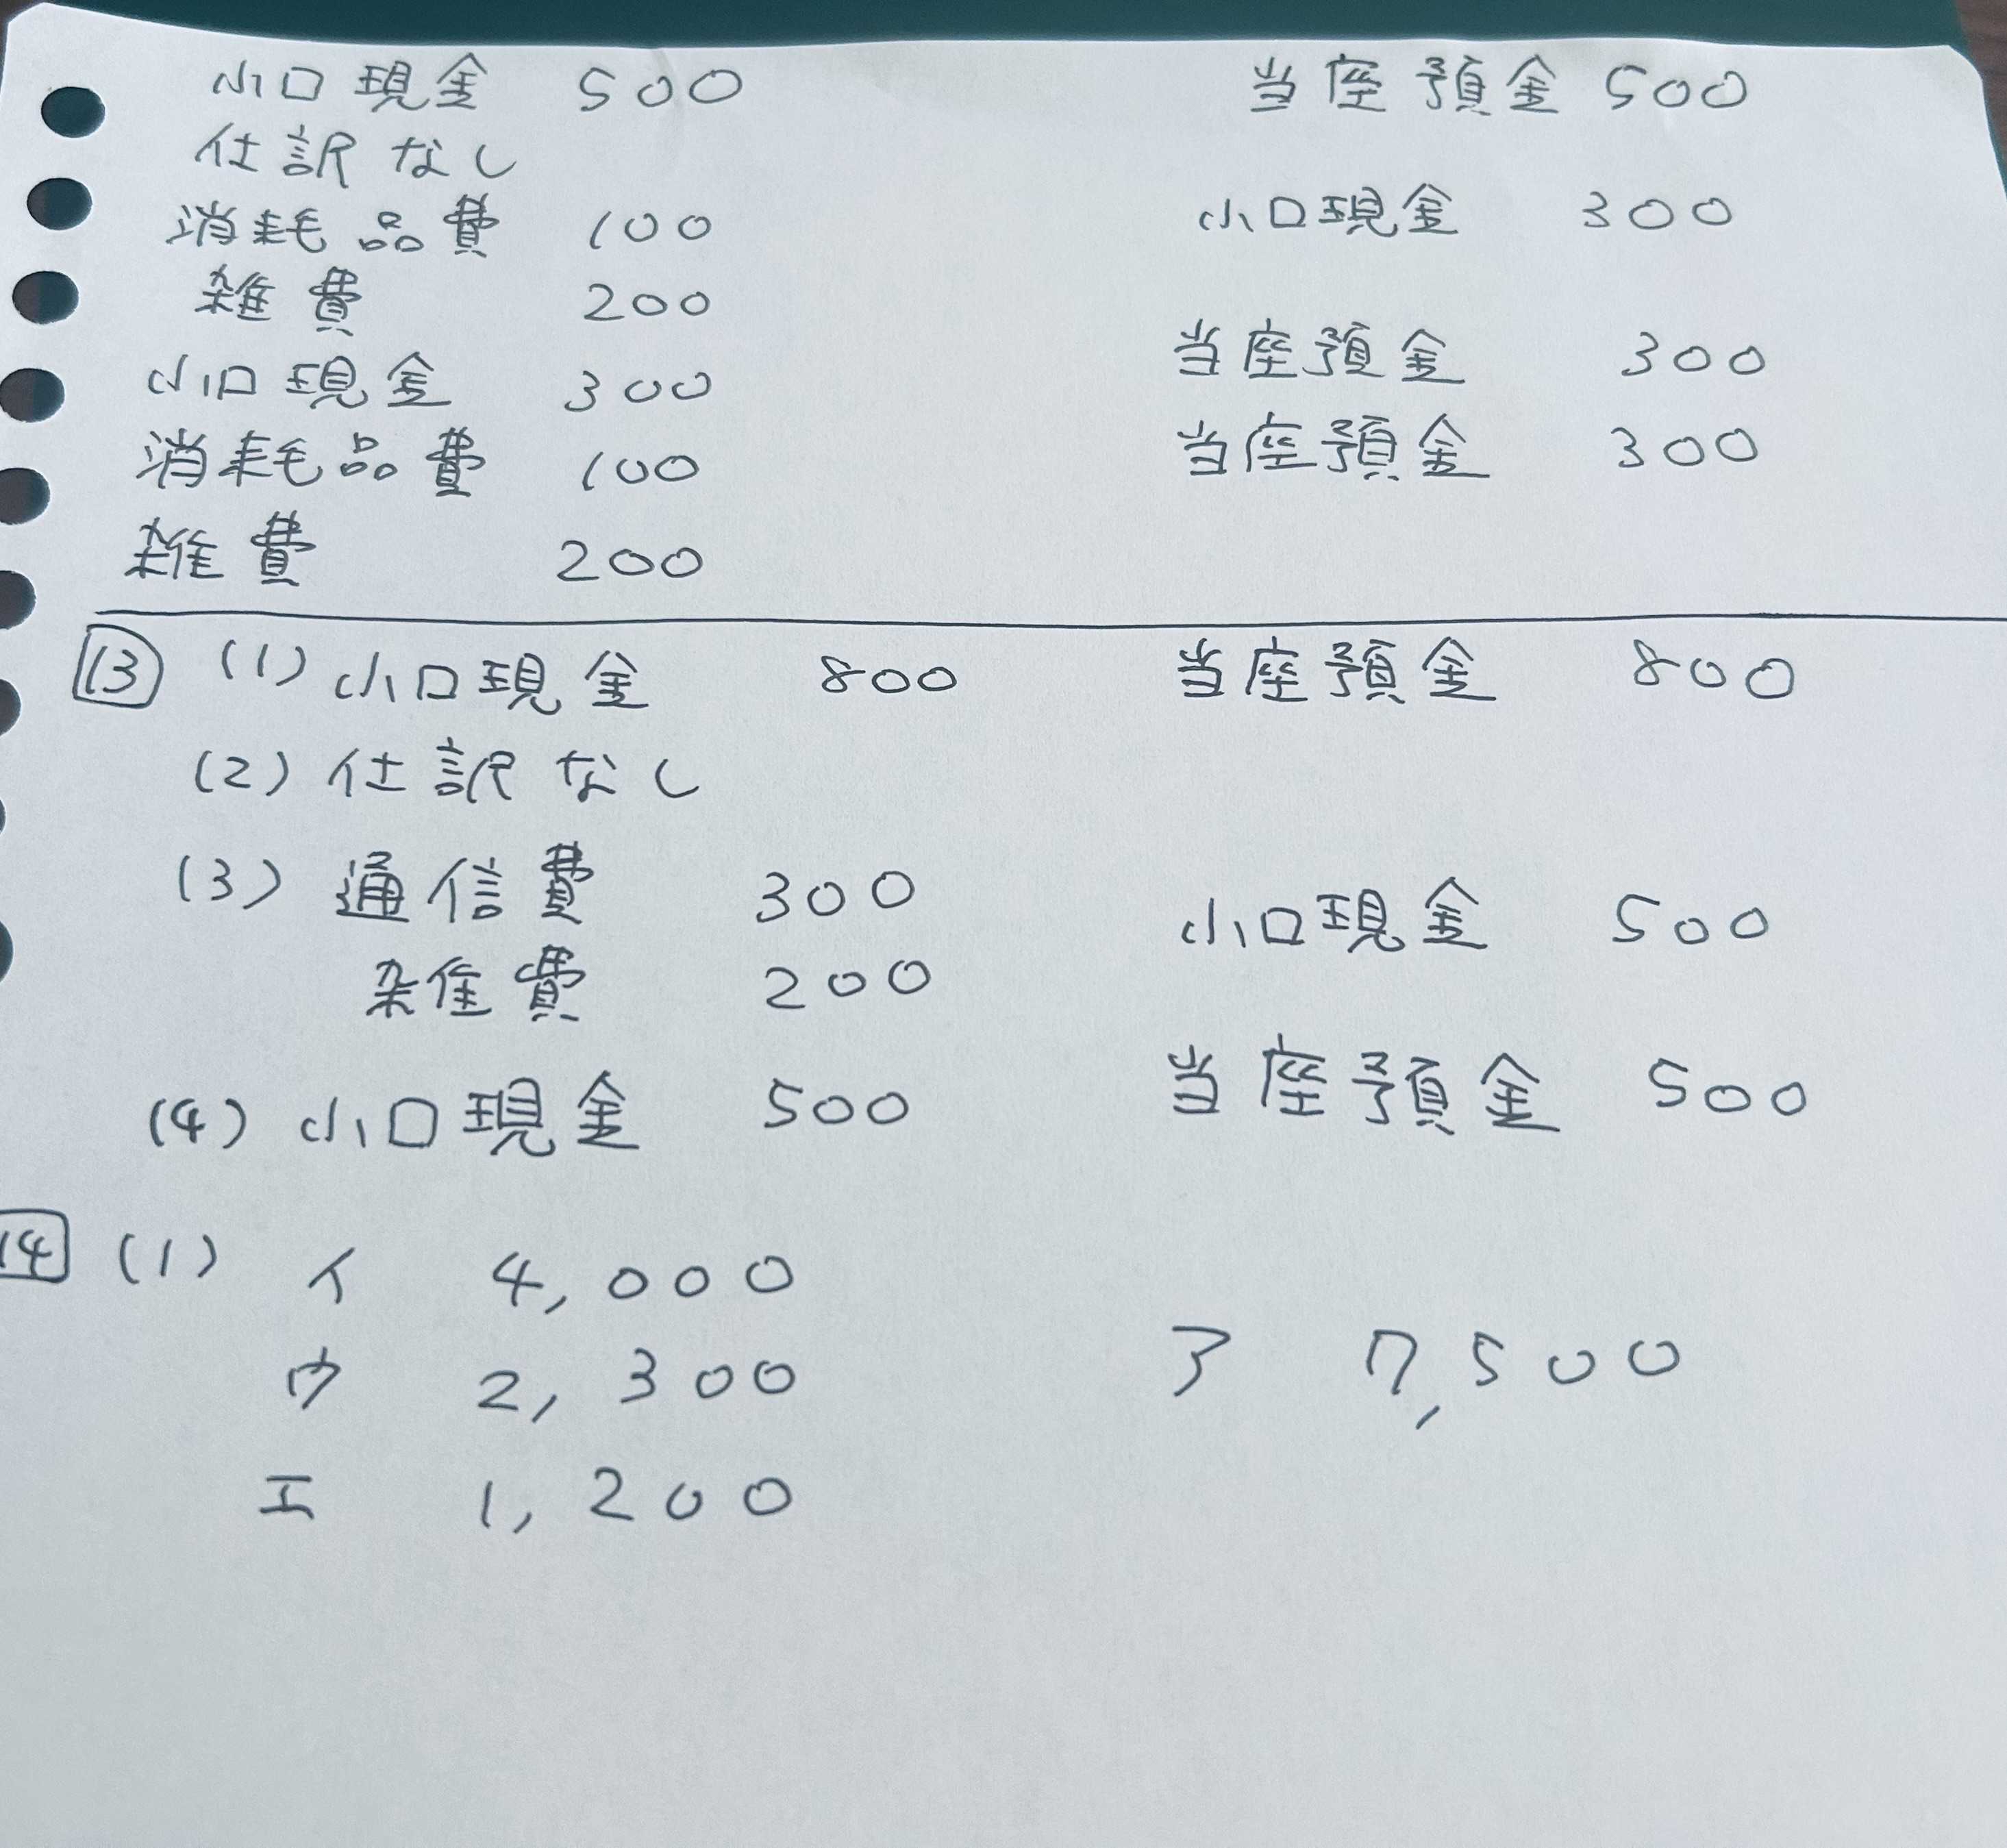 小口現金 500 当座預金 500
仕訳なし
消耗品費 100 小口現金 300
雑費 200
小口現金 300 当座預金 300
消耗品費 100 当座預金 300
雑費 200
13 (1) 小口現金 800 当座預金 800
(2) 仕訳なし
(3) 通信費 300 小口現金 500
雑費 200
(4) 小口現金 500 当座預金 500
14 (1) イ 4,000
ウ 2,300 ア 7,500
エ 1,200